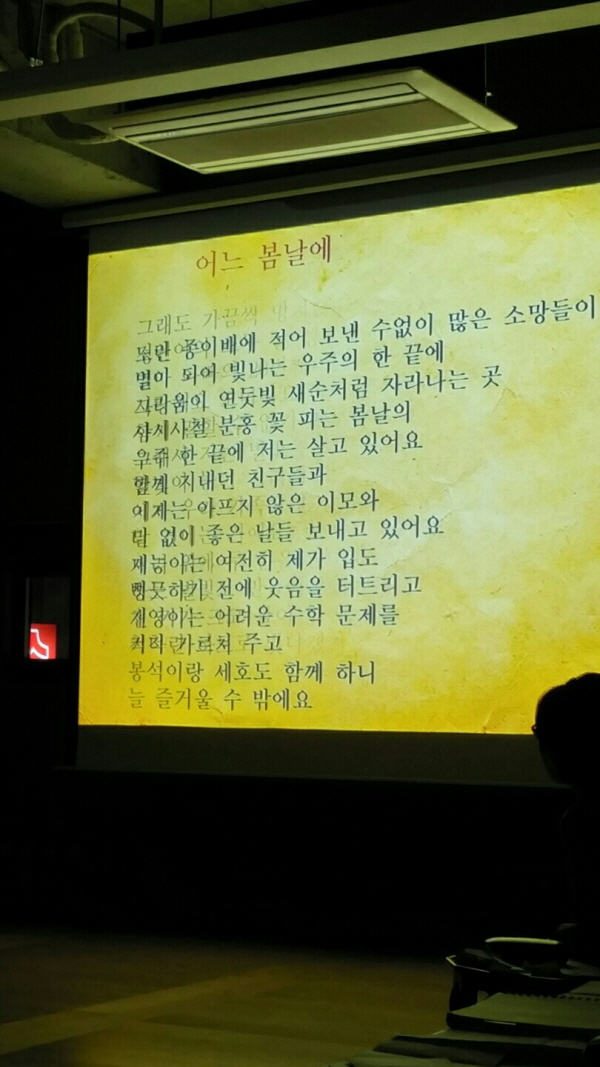 어느 봄날에
그래도 가끔씩
종이배에 적어 보낸 수없이 많은 소망들이
별이 되어 빛나는 우주의 한 끝에
연둣빛 새순처럼 자라나는 곳
사시사철 분홍 꽃 피는 봄날의
우주 한 끝에 저는 살고 있어요
함께 지내던 친구들과
이제는 아프지 않은 이모와
탈 없이 좋은 날들 보내고 있어요
여전히 제가 입도
뻥긋하기 전에 웃음을 터트리고
어려운 수학 문제를
가르쳐 주고
봉석이랑 세호도 함께 하니
늘 즐거울 수 밖에요